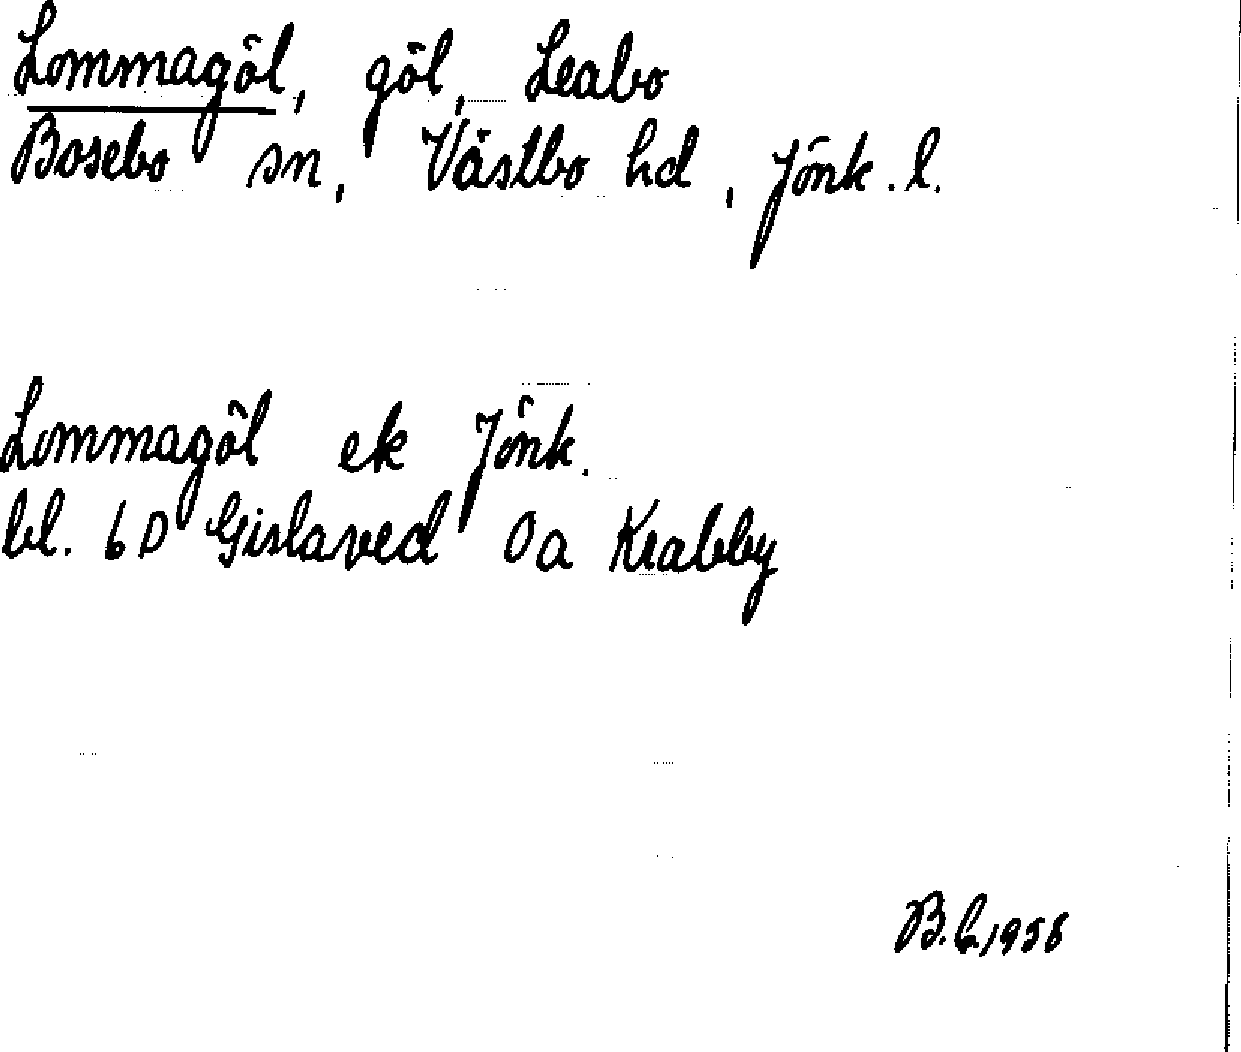 Lommagöl, göl, Leabo
Bosebo sn, Västbo hd, Jönk. l.
Lommagöl ek Jönk.
bl. 6D Gislaved 0a Krabby
1958